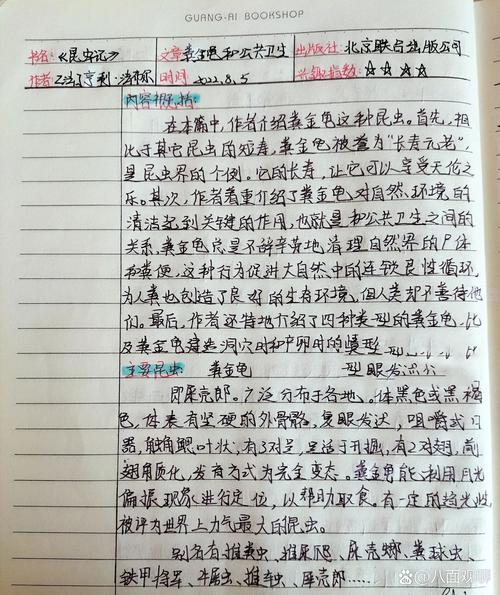 GUANG.AI BOOKSHOP
书名:《昆虫记》 文章 粪金龟和公共卫生 出版社: 北京联合出版公司
作者 亨利·法布尔 时间 2022.8.5 兴趣指数: ☆ ☆ ☆ ☆
内容概括:
在本篇中,作者介绍粪金龟这种昆虫。首先,相
比于其它昆虫的短寿,粪金龟被誉为“长寿元老”,
是昆虫界的个例。它的长寿,让它可以享受天伦之
乐。其次,作者着重介绍了粪金龟对自然环境的
清洁起到关键的作用,也就是和公共卫生之间的
关系,粪金龟总是不辞辛劳地清理自然界的尸体
和粪便,这种行为促进大自然中的连锁良性循环,
为人类也创造了良好的生存环境,但人类却不善待他
们。最后,作者还特地介绍了四种类型的粪金龟,以
及粪金龟建造洞穴时和产卵时的情形
主要昆虫 粪金龟
即屎壳郎。广泛分布于各地。体黑色或黑褐
色,体表有坚硬的外骨骼,复眼发达,咀嚼式口
器,触角鳃叶状,有3对足,足适于开掘,有2对翅,前
翅角质化,发育方式为完全变态。粪金龟能利用月光
偏振现象进行定位,以帮助取食。有一定的趋光性
被评为世界上力气最大的昆虫。
别名有推粪虫、推屎爬、屎壳螂、粪球虫、
铁甲将军、牛屎虫、推车虫、屎壳郎……
八面观聊